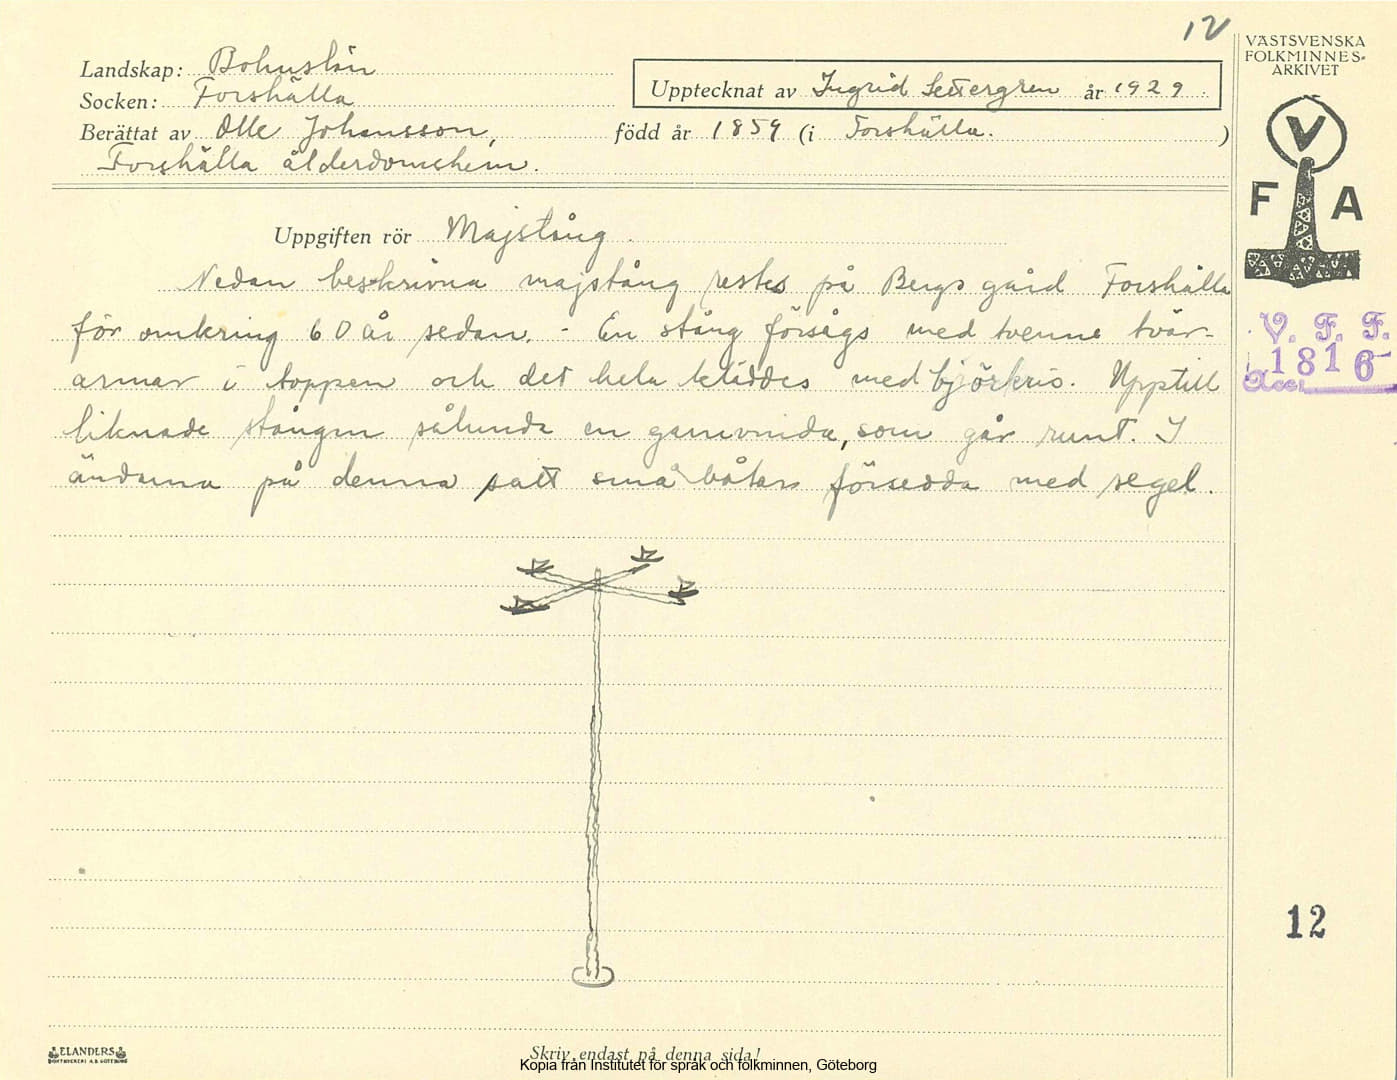 12
VÄSTSVENSKA
FOLKMINNES-
ARKIVET
Landskap: Bohuslän
Socken: Forshälla
Upptecknat av Ingrid Settergren år 1929
Berättat av Olle Johansson, född år 1859 (i Forshälla.)
Forshälla ålderdomshem.
V
F A
Uppgiften rör Majstång.
Nedan beskrivna majstång restes på Bergs gård Forshälla
för omkring 60 år sedan. - En stång försågs med tvenne tvär-
armar i toppen och det hela kläddes med björkris. Upptill
liknade stången sålunda en garnvinda, som går runt. I
ändarna på denna satt små båtar försedda med segel.
V. F. F.
Acc. 1816
12
ELANDERS
BOKTRYCKERI A.B. GÖTEBORG
Skriv endast på denna sida!
Kopia från Institutet för språk och folkminnen, Göteborg